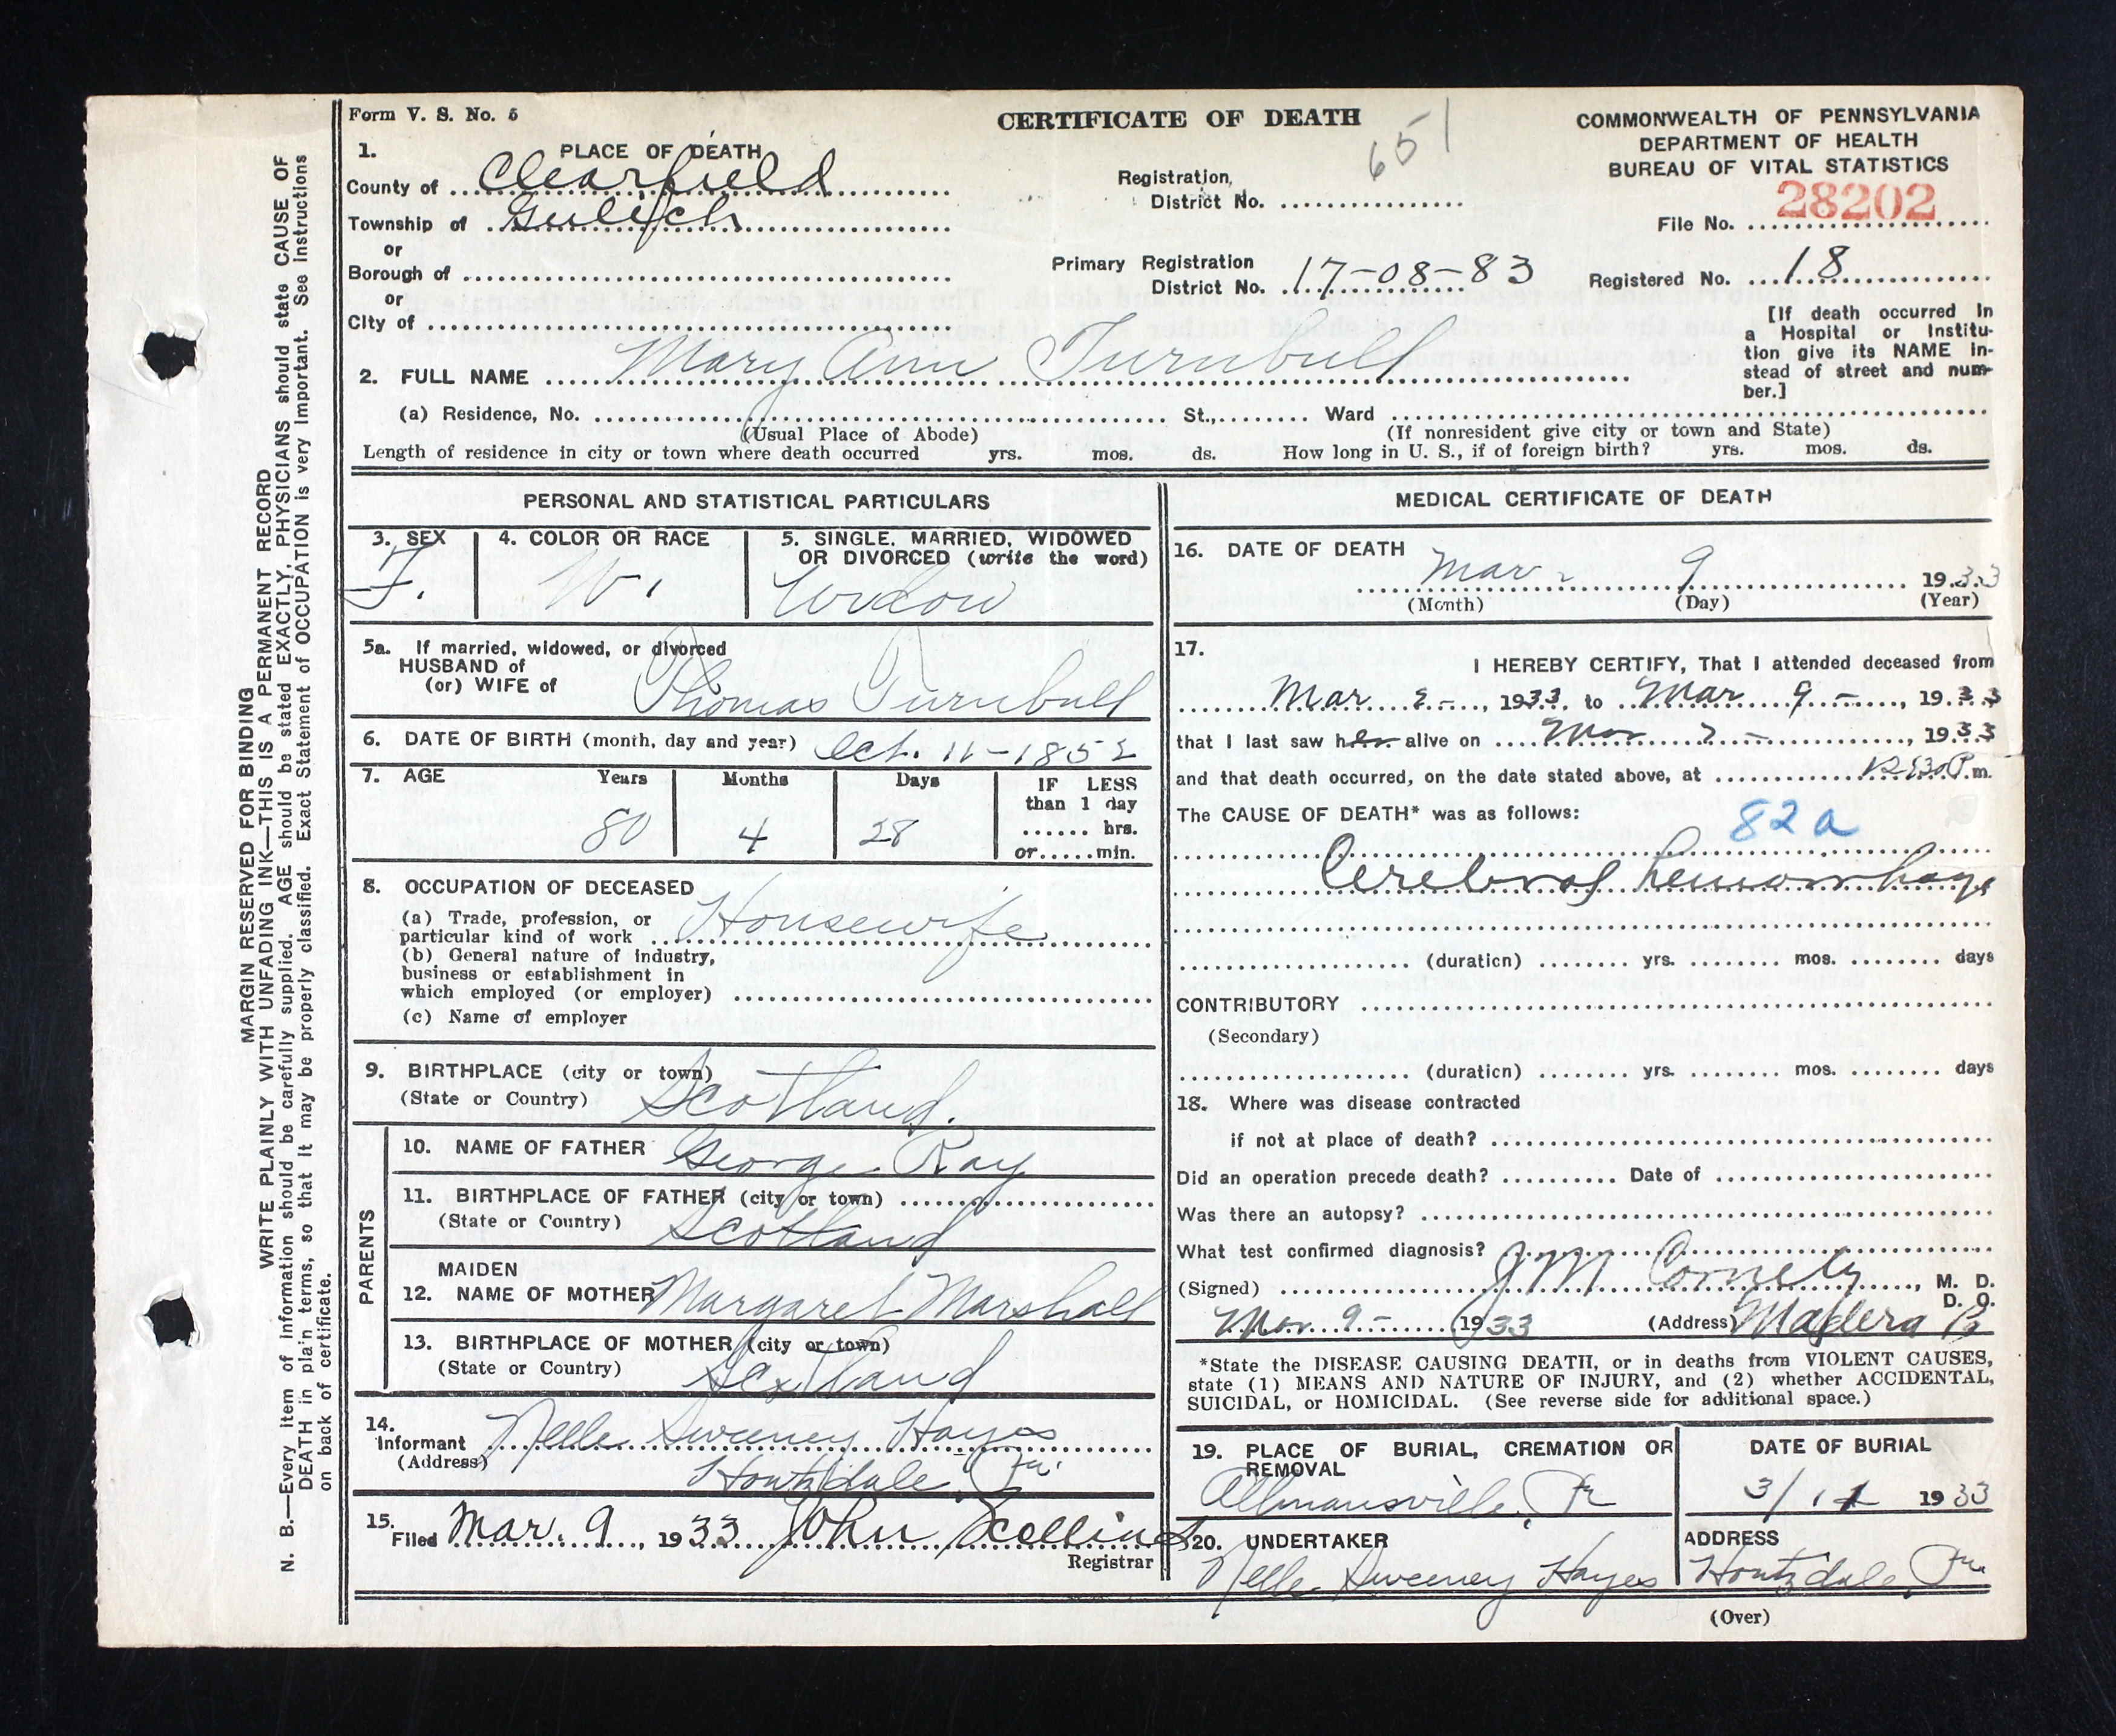 Form V. S. No. 5
CERTIFICATE OF DEATH
651
COMMONWEALTH OF PENNSYLVANIA
DEPARTMENT OF HEALTH
BUREAU OF VITAL STATISTICS
28202
File No.
1. PLACE OF DEATH
County of Clearfield
Township of Gulich
or
Borough of
or
City of
Registration
District No.
Primary Registration
District No. 17-08-83
Registered No. 18
[If death occurred in
a Hospital or Institu-
tion give its NAME in-
stead of street and num-
ber.]
2. FULL NAME Mary Ann Turnbull
(a) Residence, No. St., Ward
(Usual Place of Abode)
(If nonresident give city or town and State)
Length of residence in city or town where death occurred yrs. mos. ds. How long in U. S., if of foreign birth? yrs. mos. ds.
PERSONAL AND STATISTICAL PARTICULARS
3. SEX
F.
4. COLOR OR RACE
W.
5. SINGLE, MARRIED, WIDOWED
OR DIVORCED (write the word)
Widow
5a. If married, widowed, or divorced
HUSBAND of
(or) WIFE of Thomas Turnbull
6. DATE OF BIRTH (month, day and year) Oct. 11-1852
7. AGE Years Months Days IF LESS
than 1 day
hrs.
or min.
80 4 28
8. OCCUPATION OF DECEASED
(a) Trade, profession, or
particular kind of work Housewife
(b) General nature of industry,
business or establishment in
which employed (or employer)
(c) Name of employer
9. BIRTHPLACE (city or town)
(State or Country) Scotland.
PARENTS
10. NAME OF FATHER George Ray
11. BIRTHPLACE OF FATHER (city or town)
(State or Country) Scotland
MAIDEN
12. NAME OF MOTHER Margaret Marshall
13. BIRTHPLACE OF MOTHER (city or town)
(State or Country) Scotland
14.
Informant Nelle Sweeney Hayes
(Address) Houtzdale, Pa.
15.
Filed Mar. 9, 1933 John Scollins
Registrar
MEDICAL CERTIFICATE OF DEATH
16. DATE OF DEATH
Mar 9 1933
(Month) (Day) (Year)
17.
I HEREBY CERTIFY, That I attended deceased from
Mar 1933, to Mar 9-, 1933
that I last saw her alive on Mar -, 1933
and that death occurred, on the date stated above, at 12:30 P.m.
The CAUSE OF DEATH* was as follows:
82a
Cerebral hemorrhage
(duration) yrs. mos. days
CONTRIBUTORY
(Secondary)
(duration) yrs. mos. days
18. Where was disease contracted
if not at place of death?
Did an operation precede death? Date of
Was there an autopsy?
What test confirmed diagnosis?
(Signed) J M Cornely, M. D.
D. O.
Mar 9- 1933 (Address) Madera
*State the DISEASE CAUSING DEATH, or in deaths from VIOLENT CAUSES,
state (1) MEANS AND NATURE OF INJURY, and (2) whether ACCIDENTAL,
SUICIDAL, or HOMICIDAL. (See reverse side for additional space.)
19. PLACE OF BURIAL, CREMATION OR
REMOVAL
Allmansville, Pa
DATE OF BURIAL
3/ 1933
20. UNDERTAKER
Nelle Sweeney Hayes
ADDRESS
Houtzdale, Pa.
(Over)
MARGIN RESERVED FOR BINDING
WRITE PLAINLY WITH UNFADING INK—THIS IS A PERMANENT RECORD
N. B.—Every item of information should be carefully supplied. AGE should be stated EXACTLY, PHYSICIANS should state CAUSE OF
DEATH in plain terms, so that it may be properly classified. Exact Statement of OCCUPATION is very important. See instructions
on back of certificate.